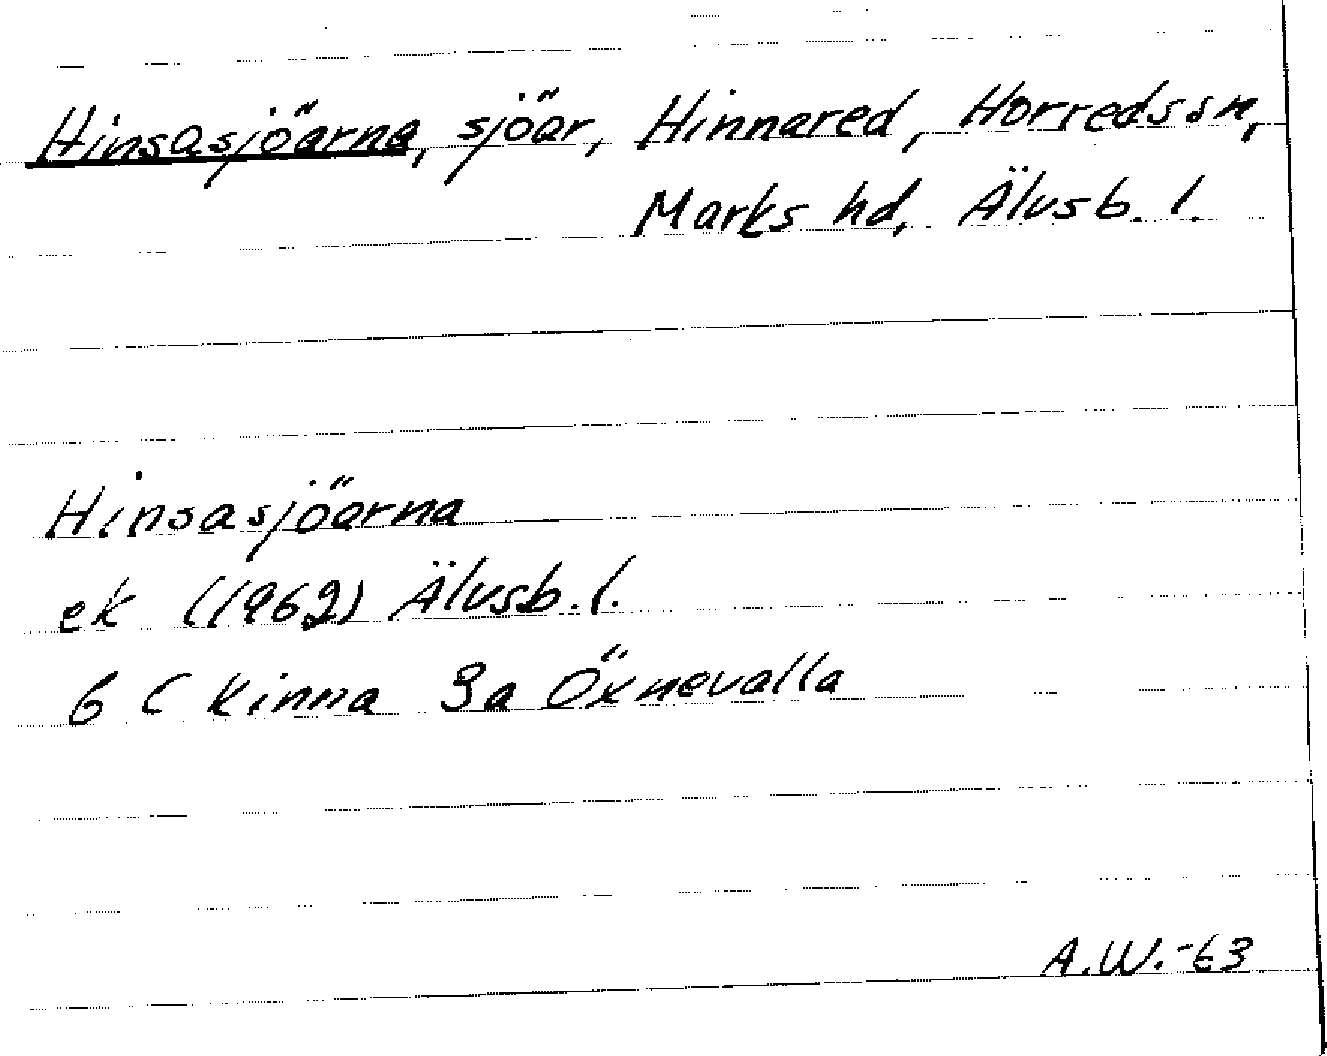 Hinsasjöarna, sjöar, Hinnared, Horredssn,
Marks hd, Älvsb. l.
Hinsasjöarna
ek (1962) Älvsb. l.
6 C Kinna 3a Öxnevalla
A.W.-63